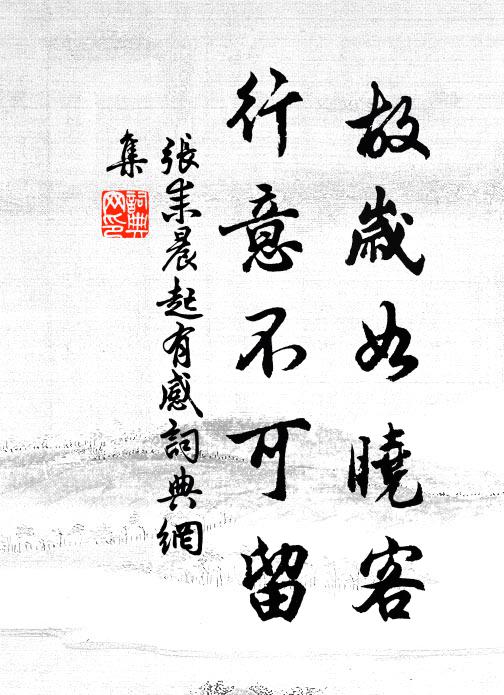 故歲如曉客
行意不可留
張耒晨起有感詞典網
集
詞典
网印